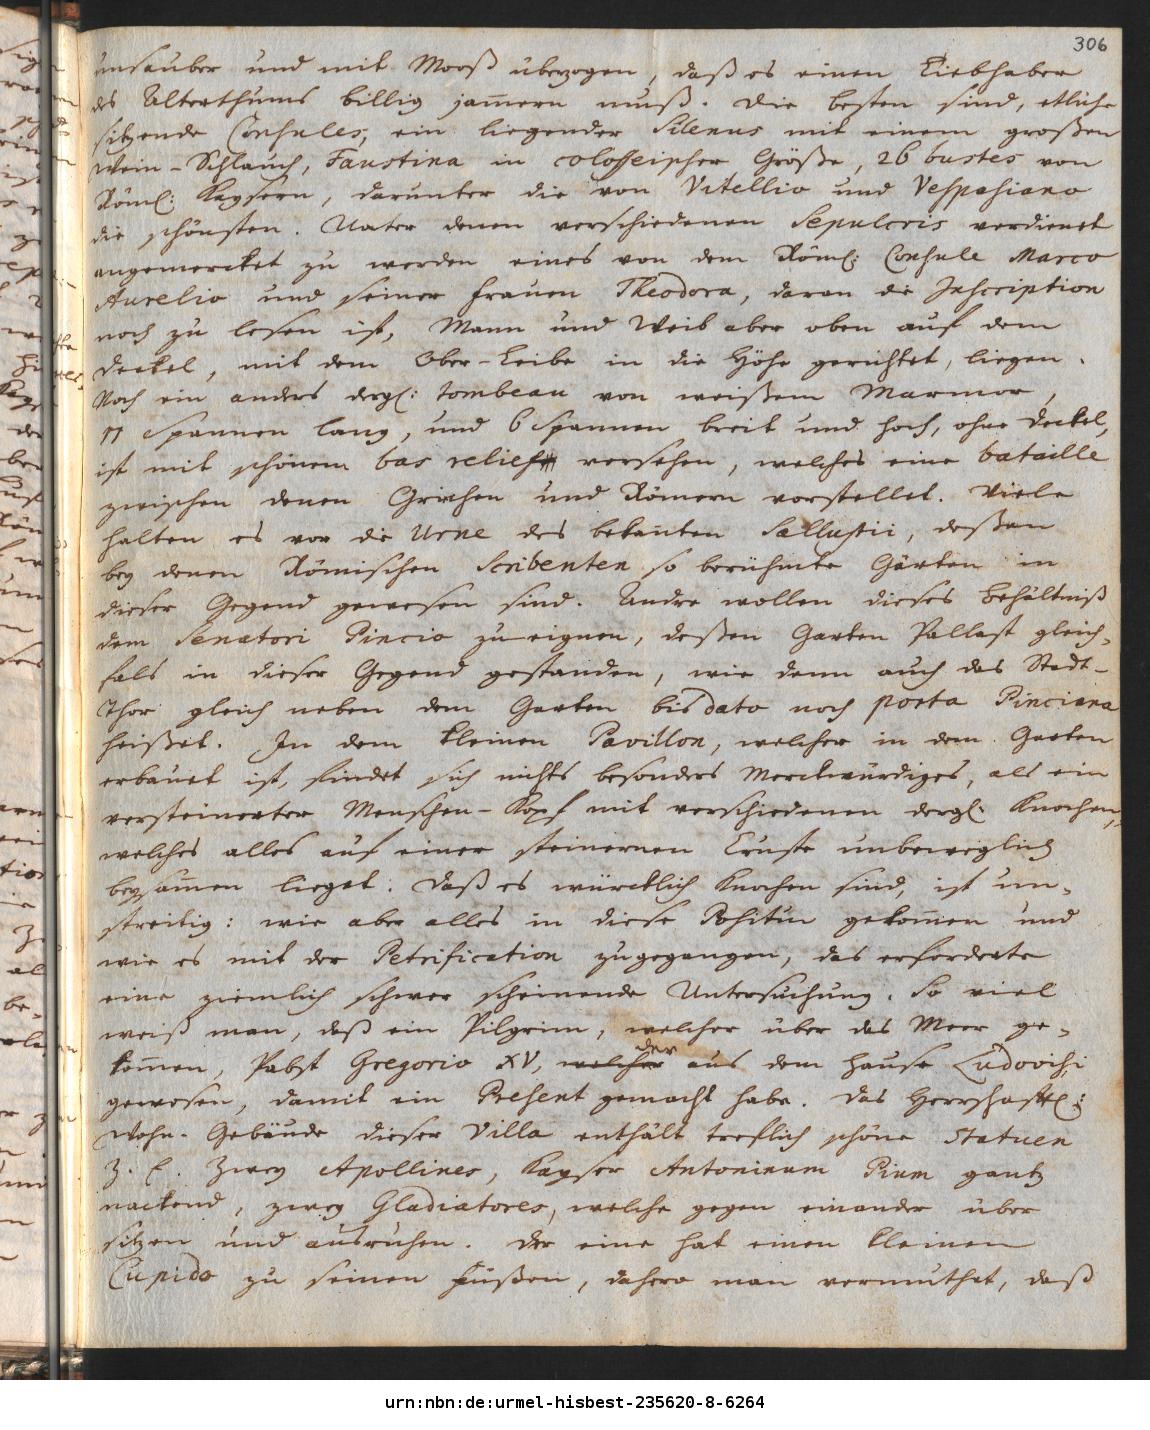 306
unsauber und mit Mooß überzogen, daß es einen Liebhaber
des Alterthums billig jam̄ern muß. Die besten sind, etliche
sitzende Consules, ein liegender Silenus mit einem großen
Wein-Schlauch, Faustina in colosseischer Größe, 26 bustes von
Röml: Kaysern, darunter die von Vitellio und Vespasiano
die schönsten. Unter denen verschiedenen Sepulcris verdienet
angemercket zu werden eines von dem Röml: Consule Marco
Aurelio und seiner Frauen Theodora, daran die Inscription
noch zu lesen ist, Mann und Weib aber oben auf dem
Deckel, mit dem Ober-Leibe in die Höhe gerichtet, liegen.
Noch ein anders dergl: tombeau von weißem Marmor,
11 Spannen lang, und 6 Spannen breit und hoch, ohne Deckel,
ist mit schönem bas relief versehen, welches eine bataille
zwischen denen Grichen und Römern vorstellet. Viele
halten es vor die Urne des bekan̄ten Sallustii, deßen
bey denen Römischen Scribenten so berühmte Gärten in
dieser Gegend gewesen sind. Andre wollen dieses Behältniß
dem Senatori Pincio zueignen, deßen Garten Pallast gleich-
fals in dieser Gegend gestanden, wie denn auch das Stadt-
Thor gleich neben dem Garten bis dato noch porta Pinciana
heißet. In dem kleinen Pavillon, welcher in dem Garten
erbauet ist, findet sich nichts besonders Merckwürdiges, als ein
versteinerter Menschen-Kopf mit verschiedenen dergl. Knochen,
welches alles auf einer steinernen Cruste unbeweglich
beysam̄en lieget. Daß es würcklich Knochen sind, ist un-
streitig: wie aber alles in diese Positur gekom̄en und
wie es mit der Petrification zugegangen, das erforderte
eine ziemlich schwer scheinende Untersuchung. So viel
weiß man, daß ein Pilgrim, welcher über das Meer ge-
kom̄en, Pabst Gregorio XV, welcher der aus dem Hause Ludovisi
gewesen, damit ein Present gemacht habe. Das Herrschafftl:
Wohn-Gebäude dieser Villa enthält treflich schöne Statuen
z. E. Zwey Apollines, Kayser Antoninum Pium gantz
nackend, zwey Gladiatores, welche gegen einander über
sitzen und ausruhen. Der eine hat einen kleinen
Cupido zu seinen Füßen, dahero man vermuthet, daß
urn:nbn:de:urmel-hisbest-235620-8-6264